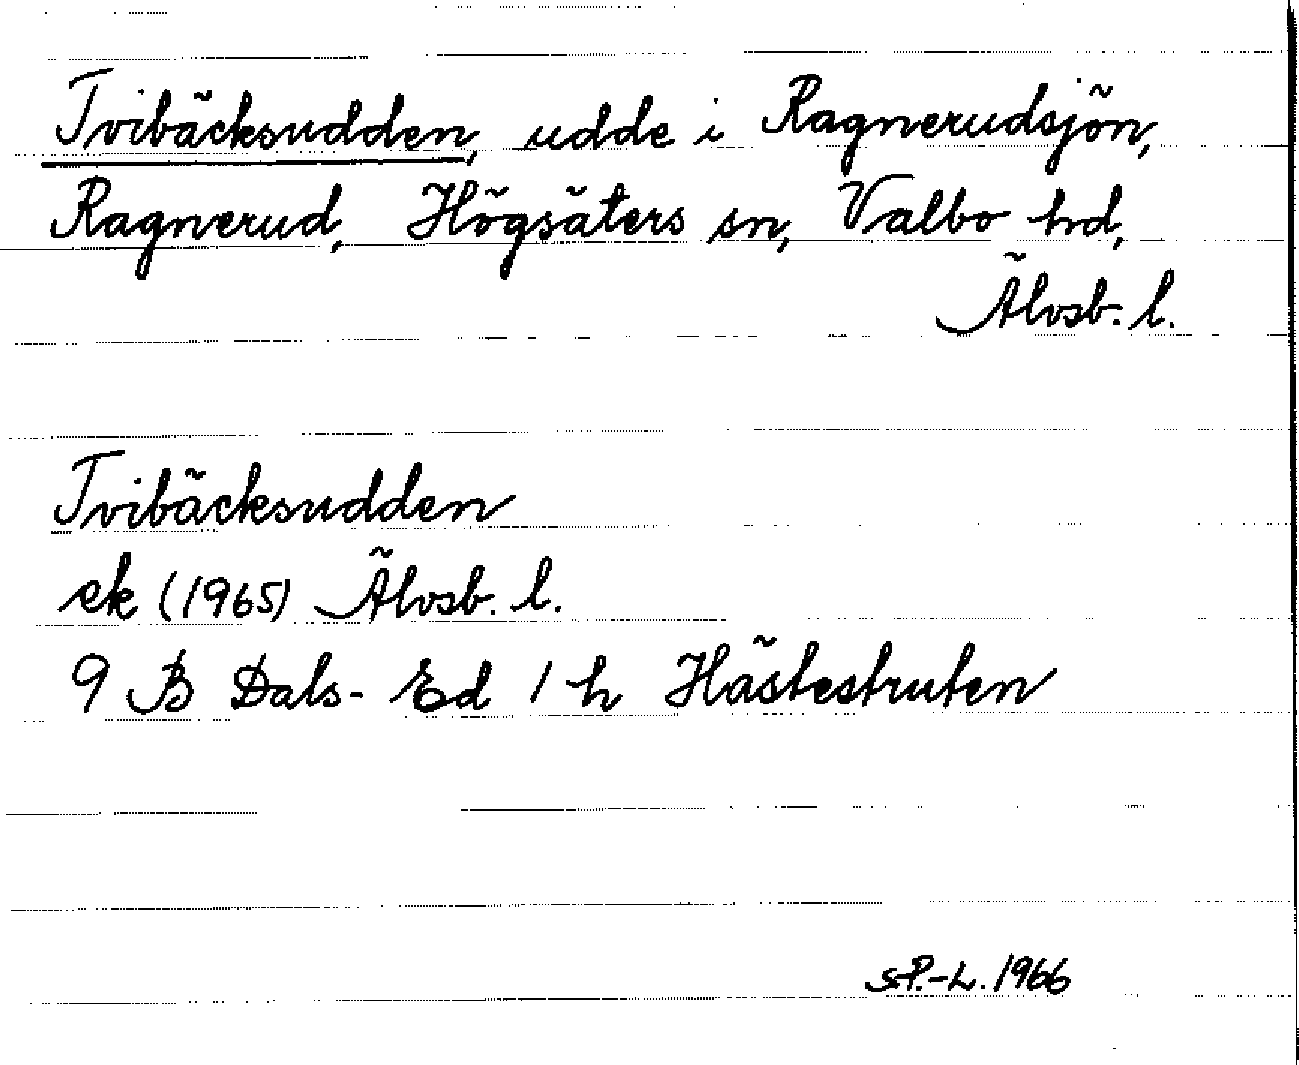 Tvibäcksudden, udde i Ragnerudsjön,
Ragnerud, Högsäters sn, Valbo hd,
Älvsb. l.
Tvibäcksudden
ek (1965) Älvsb. l.
9 B Dals-Ed 1 h Hästestruten
S.P.-L. 1966